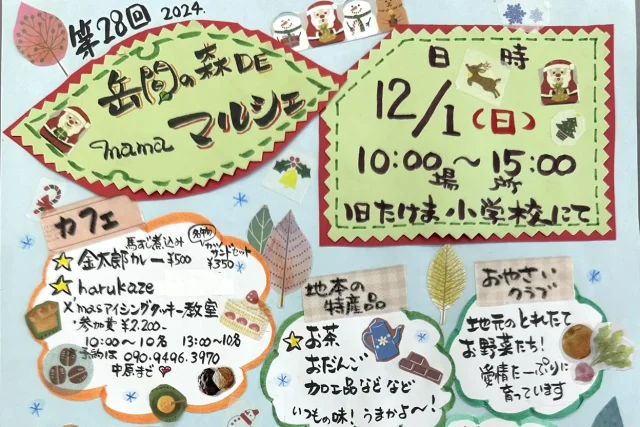 第28回 2024.
岳間の森DE
mama マルシェ
日時
12/1(日)
10:00~15:00
場所
旧たけま小学校にて
カフェ
馬すじ煮込み
☆金太郎カレー¥500
カツサンドセット
¥350
☆harukaze
X'masアイシングクッキー教室
・参加費 ¥2.200-
10:00~10名 13:00~10名
予約は 090.9496.3970
中原まで♥
地本の
特産品
☆お茶
おだんご
加工品などなど
いつもの味!うまかよ~!
おやさい
クラブ
地元のとれたて
お野菜たち!
愛情たーっぷりに
育っています